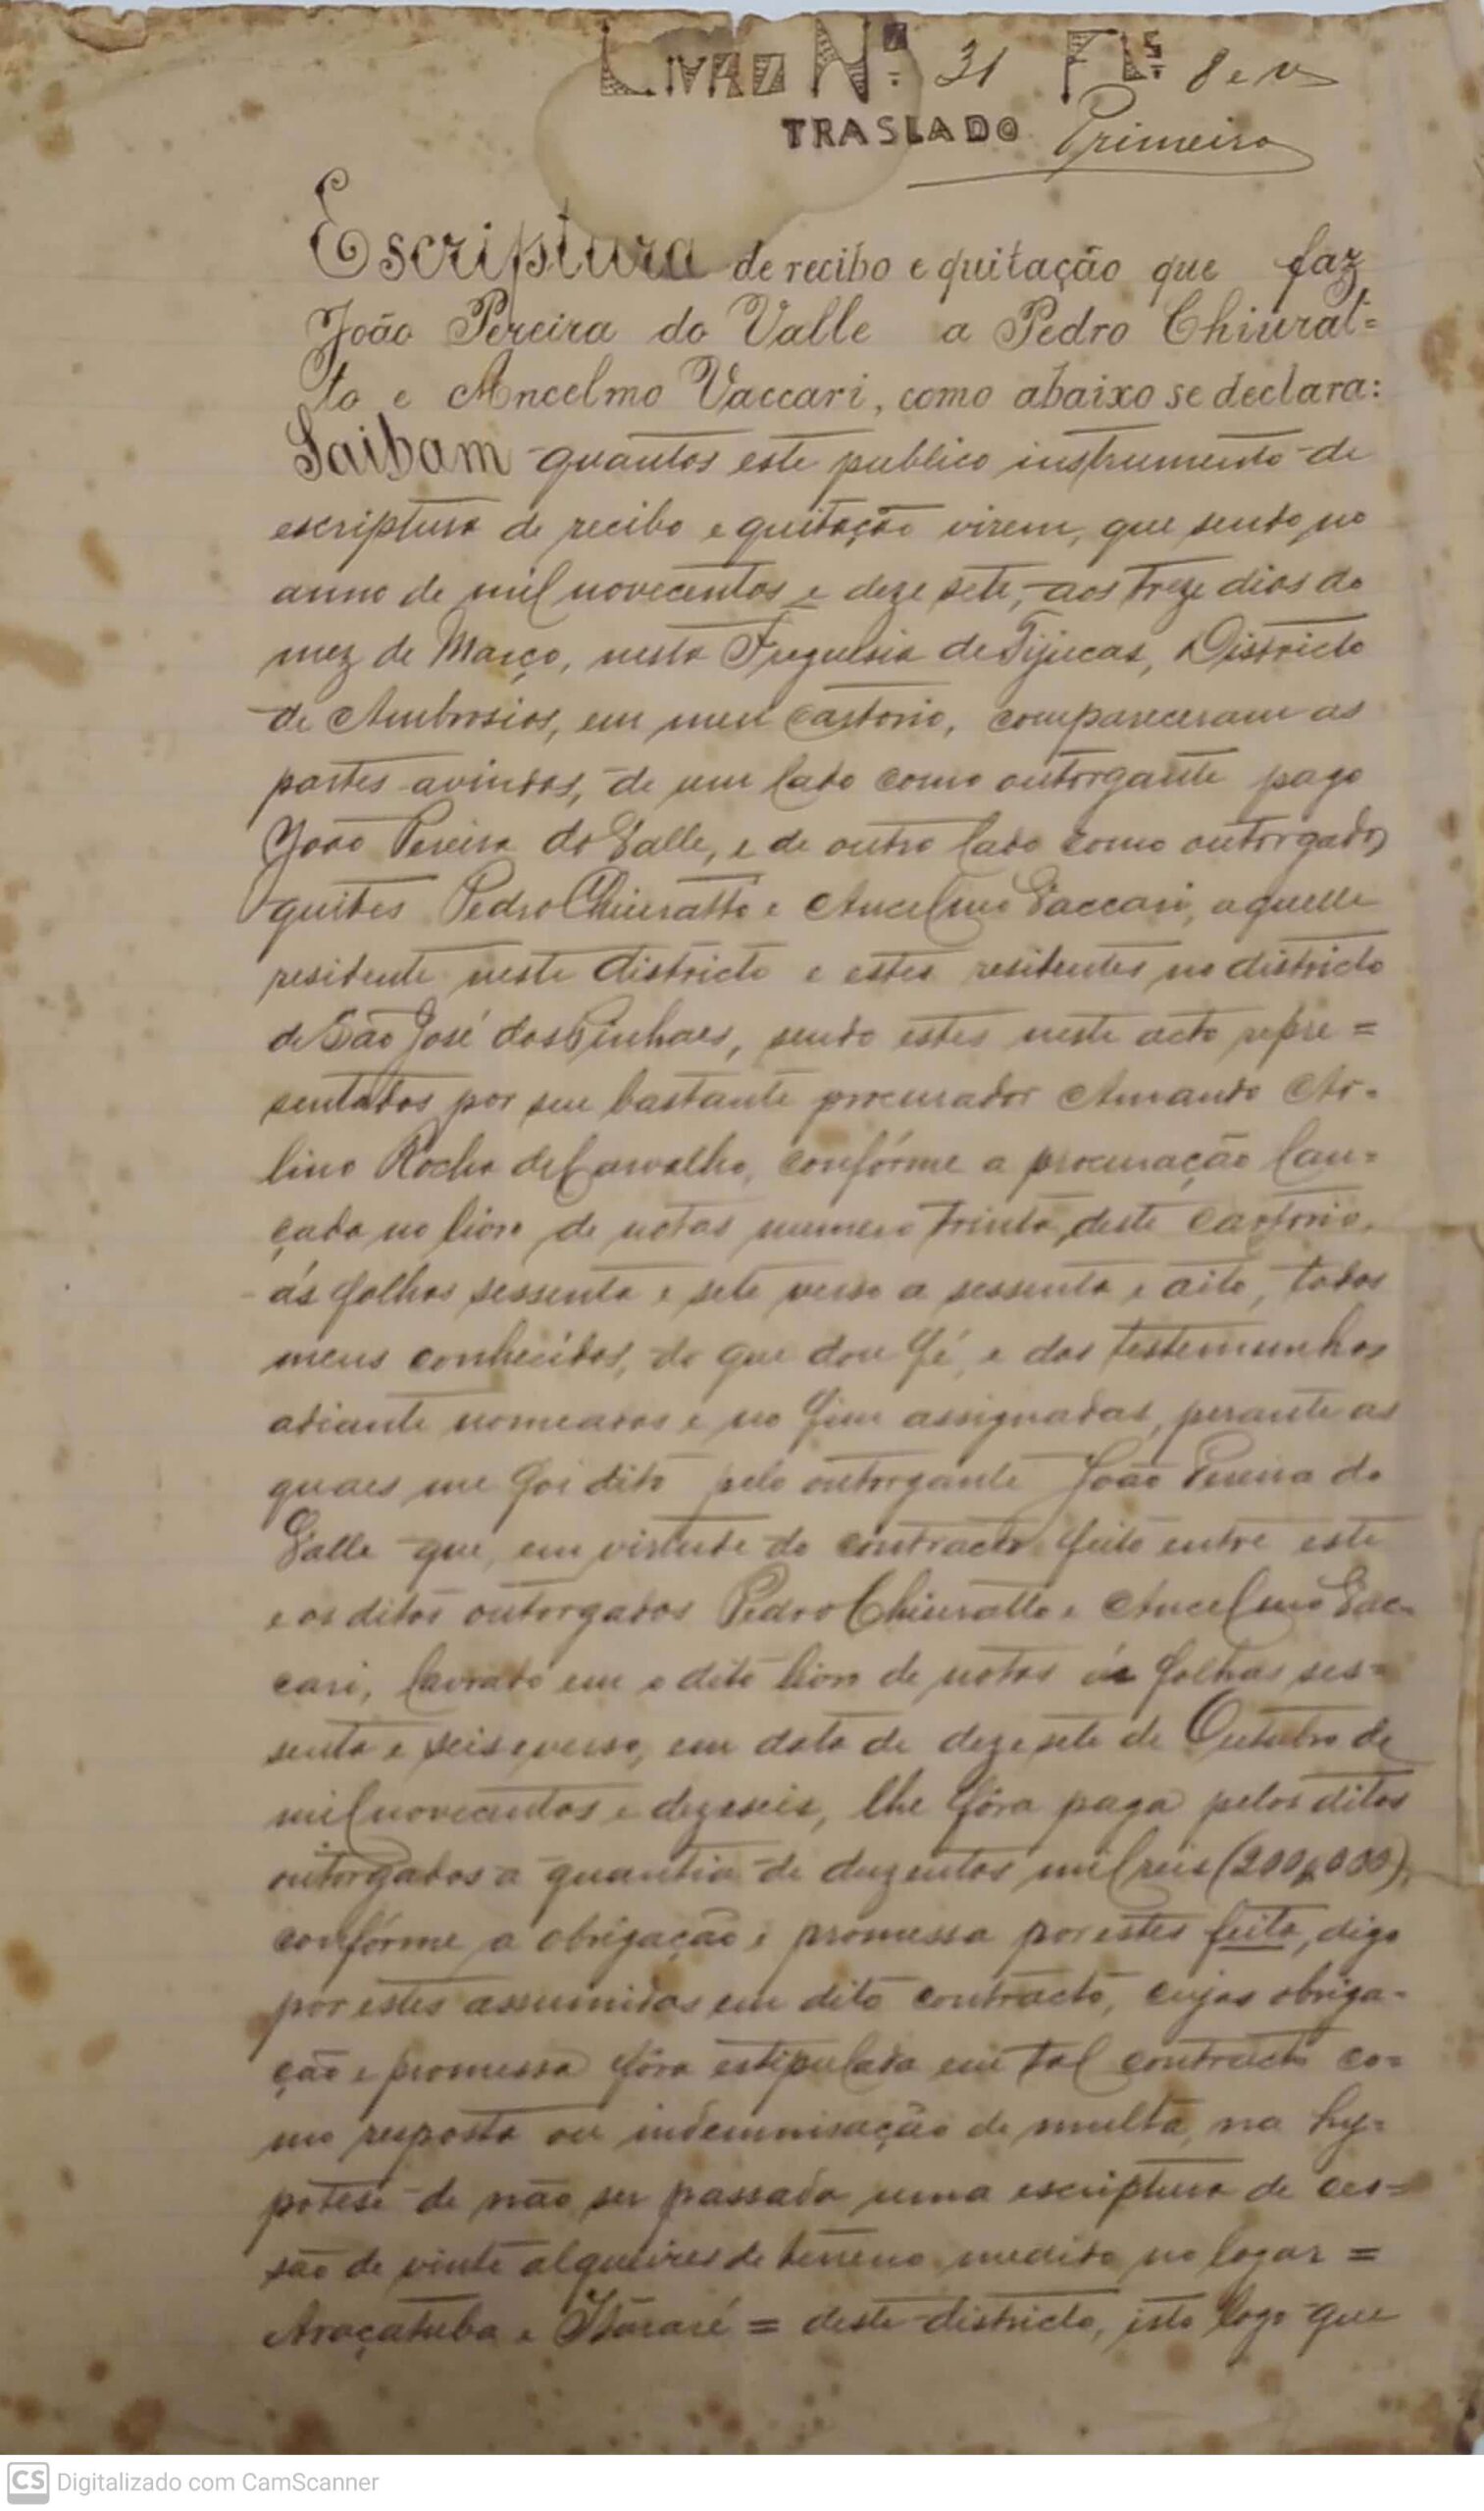 LIVRO Nº 31 Fls 8 e v
TRASLADO Primeiro
Escriptura de recibo e quitação que faz
João Pereira do Valle a Pedro Chiurat=
to e Ancelmo Vaccari, como abaixo se declara:
Saibam quantos este publico instrumento de
escriptura de recibo e quitação virem, que sendo no
anno de mil novecentos e dezesete, aos treze dias do
mez de Março, nesta Freguesia de Tijucas, Districto
de Ambrosios, em meu cartorio, compareceram as
partes avindas, de um lado como outorgante pago
João Pereira do Valle, e de outro lado como outorgados
quites Pedro Chiuratto e Ancelmo Vaccari, aquelle
residente neste districto e estes residentes no districto
de São José dos Pinhaes, sendo estes neste acto repre=
sentados por seu bastante procurador Amando Ar-
lino Rocha de Carvalho, confórme a procuração lan=
çada no livro de notas numero trinta, deste cartorio,
ás folhas sessenta e sete verso a sessenta e oito, todos
meus conhecidos, do que dou fé, e das testemunhas
adiante nomeadas e no fim assignadas, perante as
quaes me foi dito pelo outorgante João Pereira do
Valle que, em virtude do contracto feito entre este
e os ditos outorgados Pedro Chiuratto e Ancelmo Vac-
cari, lavrado em o dito livro de notas ás folhas ses=
senta e seis e verso, em data de dezesete de Outubro de
mil novecentos e dezeseis, lhe fôra paga pelos ditos
outorgados a quantia de duzentos mil reis (200$000),
confórme a obrigação e promessa por estes feita, digo
por estes assumidas em dito contracto, cujas obriga-
ção e promessa fôra estipulada em tal contracto co=
mo resposta ou indemnisação de multa, na hy=
potese de não ser passada uma escriptura de ces=
são de vinte alqueires de terreno medido no logar =
Araçatuba e Itararé = deste districto, isto logo que
CS Digitalizado com CamScanner